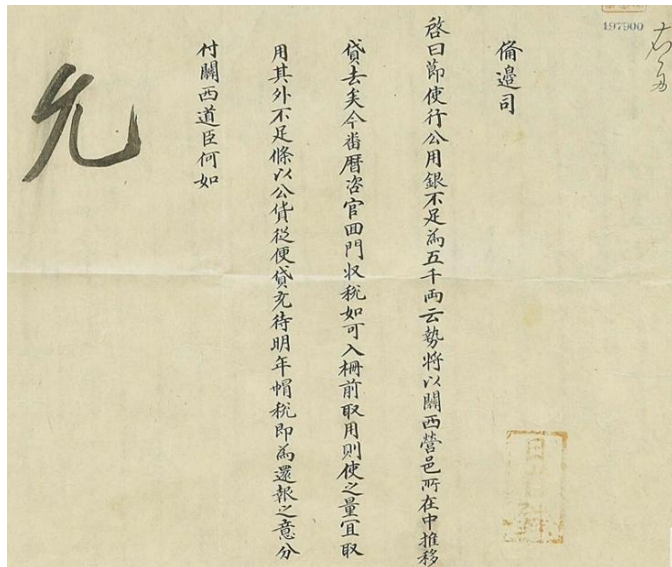 197900
備邊司
啓曰節使行公用銀不足爲五千兩云勢將以關西營邑所在中推移
貸去矣今番曆咨官回門收稅如可入柵前取用則使之量宜取
用其外不足條以公貨從便貸充待明年帽稅卽爲還報之意分
付關西道臣何如
允